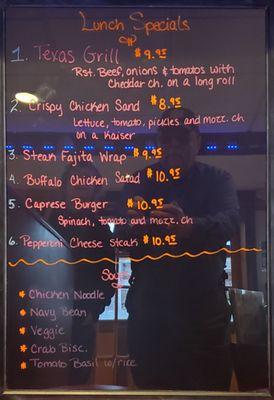 Lunch Specials
1. Texas Grill $9.95
Rst. Beef, onions & tomatos with
Cheddar ch. on a long roll
2. Crispy Chicken Sand $8.95
Lettuce, tomato, pickles and mozz. ch
on a Kaiser
3. Steak Fajita Wrap $9.95
4. Buffalo Chicken Salad $10.95
5. Caprese Burger $10.95
Spinach, tomato and mozz. ch
6. Pepperoni Cheese steak $10.95
* Chicken Noodle
* Navy Bean
* Veggie
* Crab Bisc.
* Tomato Basil w/ rice